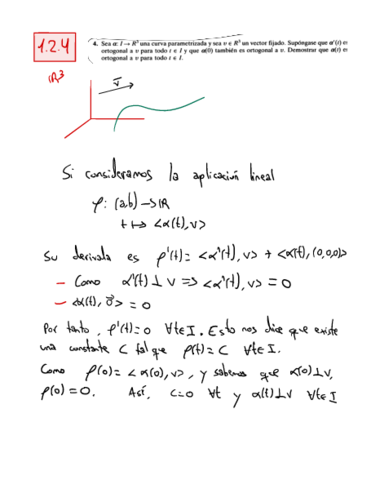 1.2.4
4. Sea α: I → R³ una curva parametrizada y sea v ∈ R³ un vector fijado. Supóngase que α'(t) es
ortogonal a v para todo t ∈ I y que α(0) también es ortogonal a v. Demostrar que α(t) es
ortogonal a v para todo t ∈ I.
ℝ³
v⃗
Si consideramos la aplicación lineal
φ: (a,b) → ℝ
t ↦ <α(t), v>
Su derivada es φ'(t) = <α'(t), v> + <α(t), (0,0,0)>
- Como α'(t) ⊥ v => <α'(t), v> = 0
- <α(t), 0⃗> = 0
Por tanto, φ'(t) = 0 ∀t∈I. Esto nos dice que existe
una constante C tal que φ(t) = C ∀t∈I.
Como φ(0) = <α(0), v>, y sabemos que α(0) ⊥ v,
φ(0) = 0. Así, C=0 ∀t y α(t) ⊥ v ∀t∈I